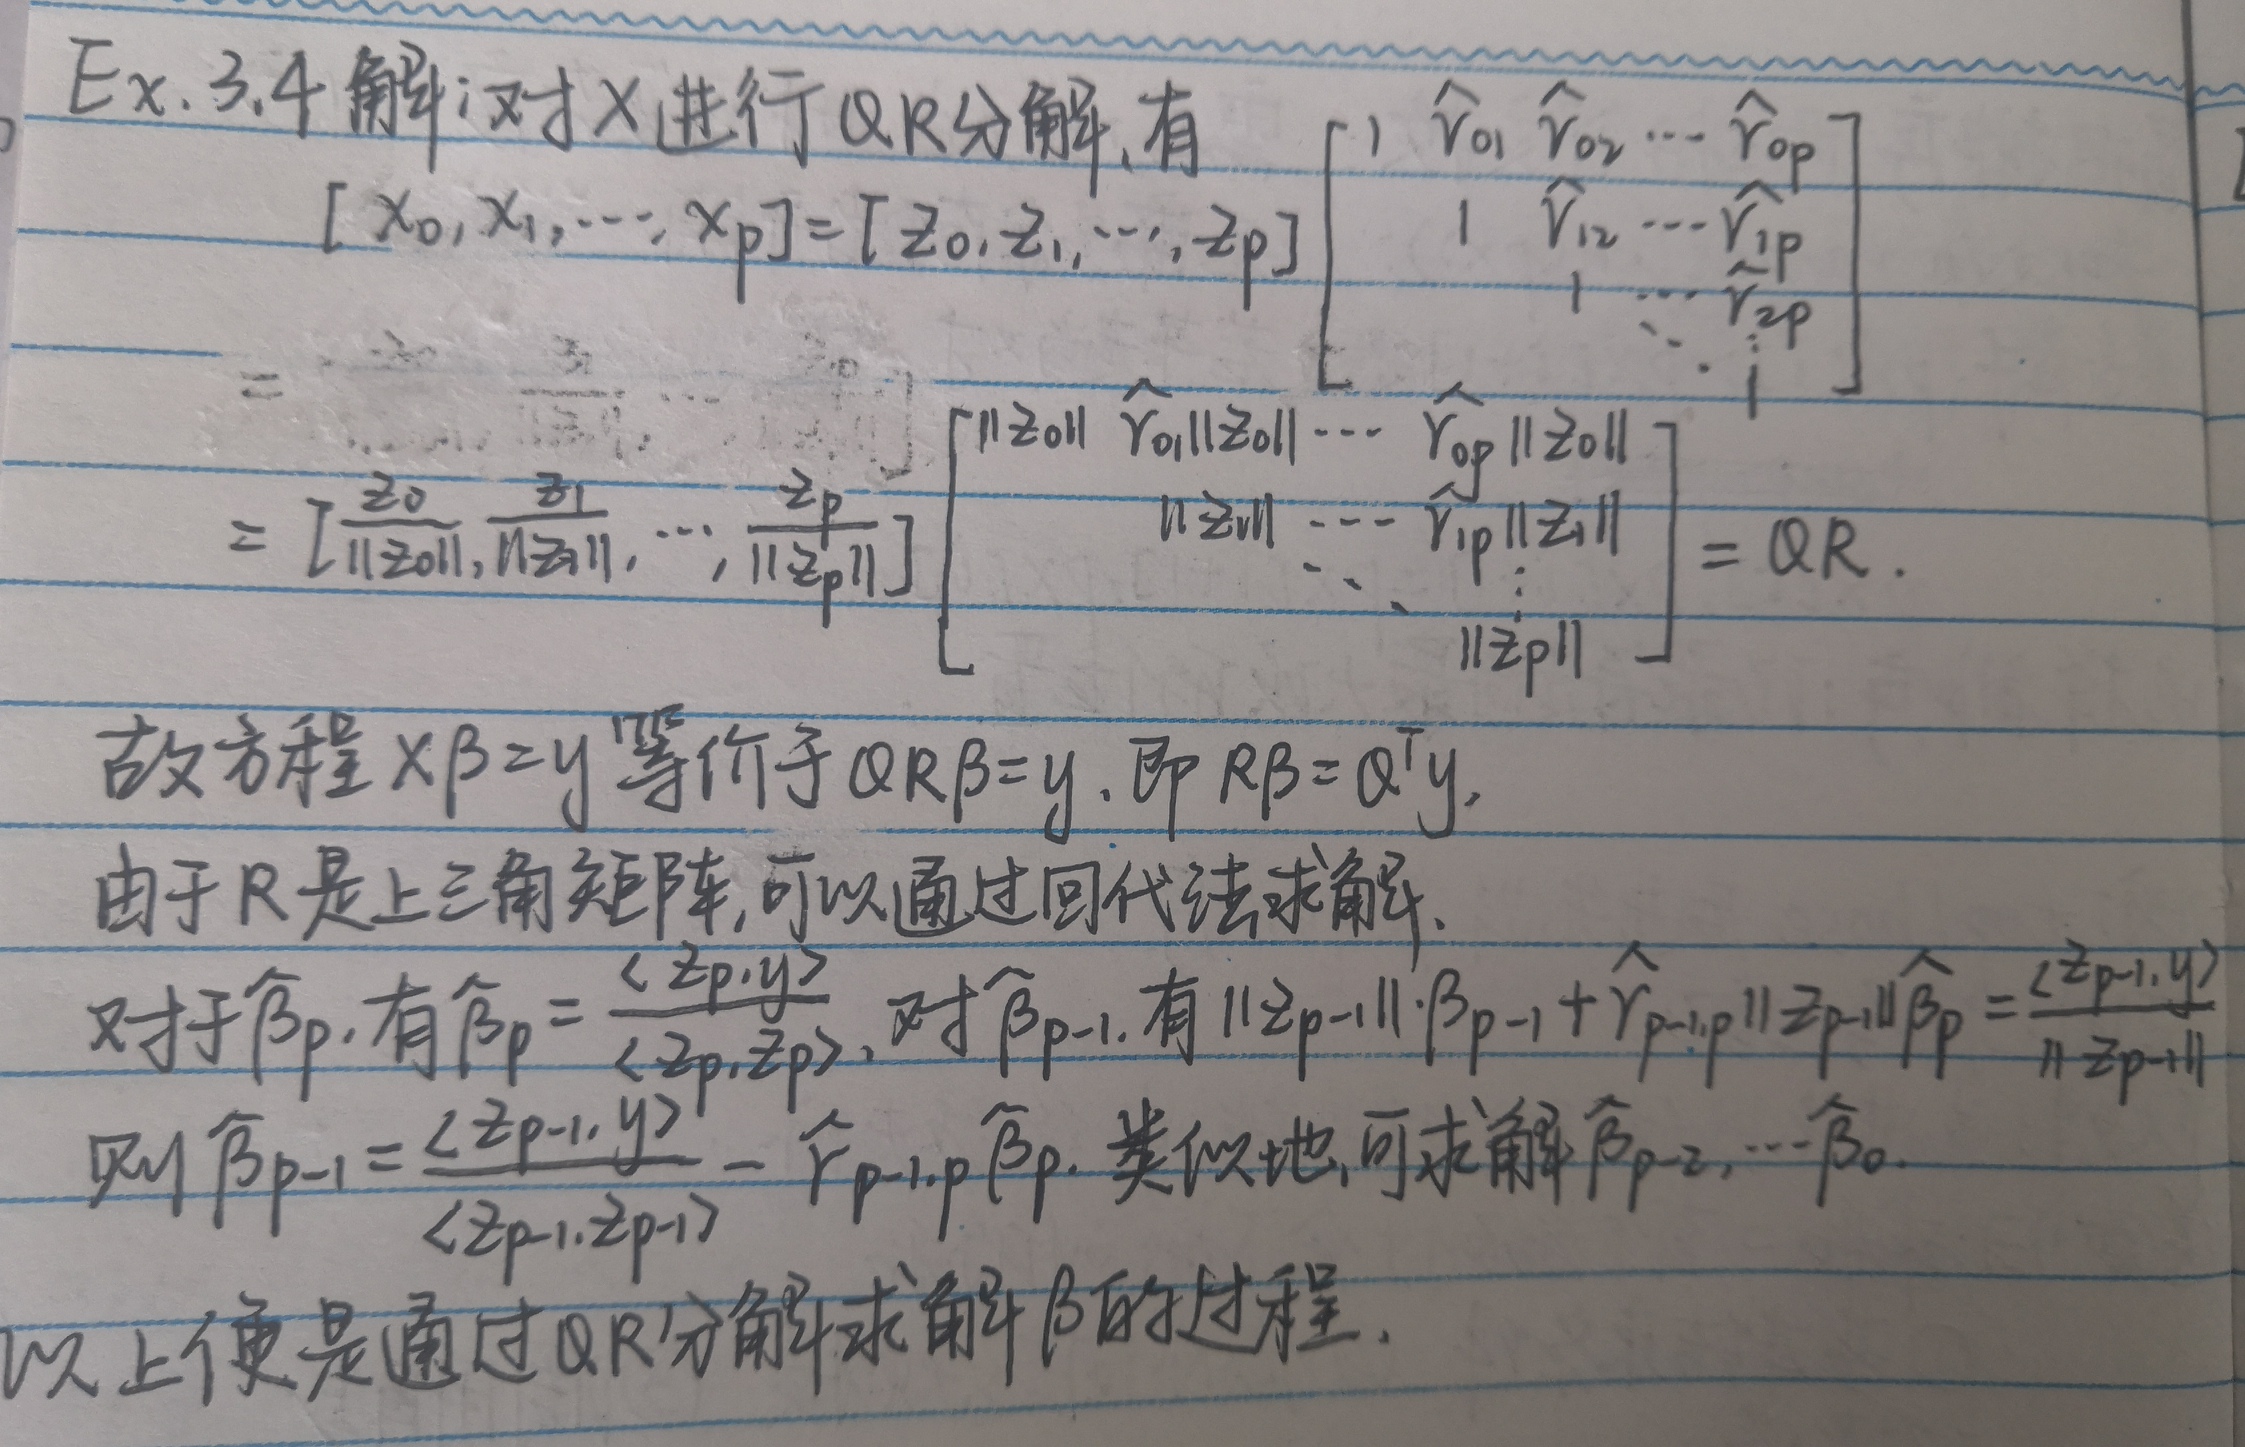 Ex.3.4 解:对X进行QR分解,有
[x₀, x₁, ⋯, xₚ] = [z₀, z₁, ⋯, zₚ] [1 γ̂₀₁ γ̂₀₂ ⋯ γ̂₀ₚ
1 γ̂₁₂ ⋯ γ̂₁ₚ
1 ⋯ γ̂₂ₚ
⋱ ⋮
1]
=
= [z₀/||z₀||, z₁/||z₁||, ⋯, zₚ/||zₚ||] [||z₀|| γ̂₀₁||z₀|| ⋯ γ̂₀ₚ||z₀||
||z₁|| ⋯ γ̂₁ₚ||z₁||
⋱ ⋮
||zₚ||] = QR.
故方程Xβ=y等价于QRβ=y,即Rβ=Qᵀy,
由于R是上三角矩阵,可以通过回代法求解.
对于β̂ₚ,有β̂ₚ = <zₚ,y>/<zₚ,zₚ>,对β̂ₚ₋₁,有||zₚ₋₁||·βₚ₋₁ + γ̂ₚ₋₁,ₚ||zₚ₋₁||β̂ₚ = <zₚ₋₁,y>/||zₚ₋₁||
则β̂ₚ₋₁ = <zₚ₋₁,y>/<zₚ₋₁,zₚ₋₁> − γ̂ₚ₋₁,ₚβ̂ₚ. 类似地,可求解β̂ₚ₋₂, ⋯β̂₀.
以上便是通过QR分解求解β的过程.